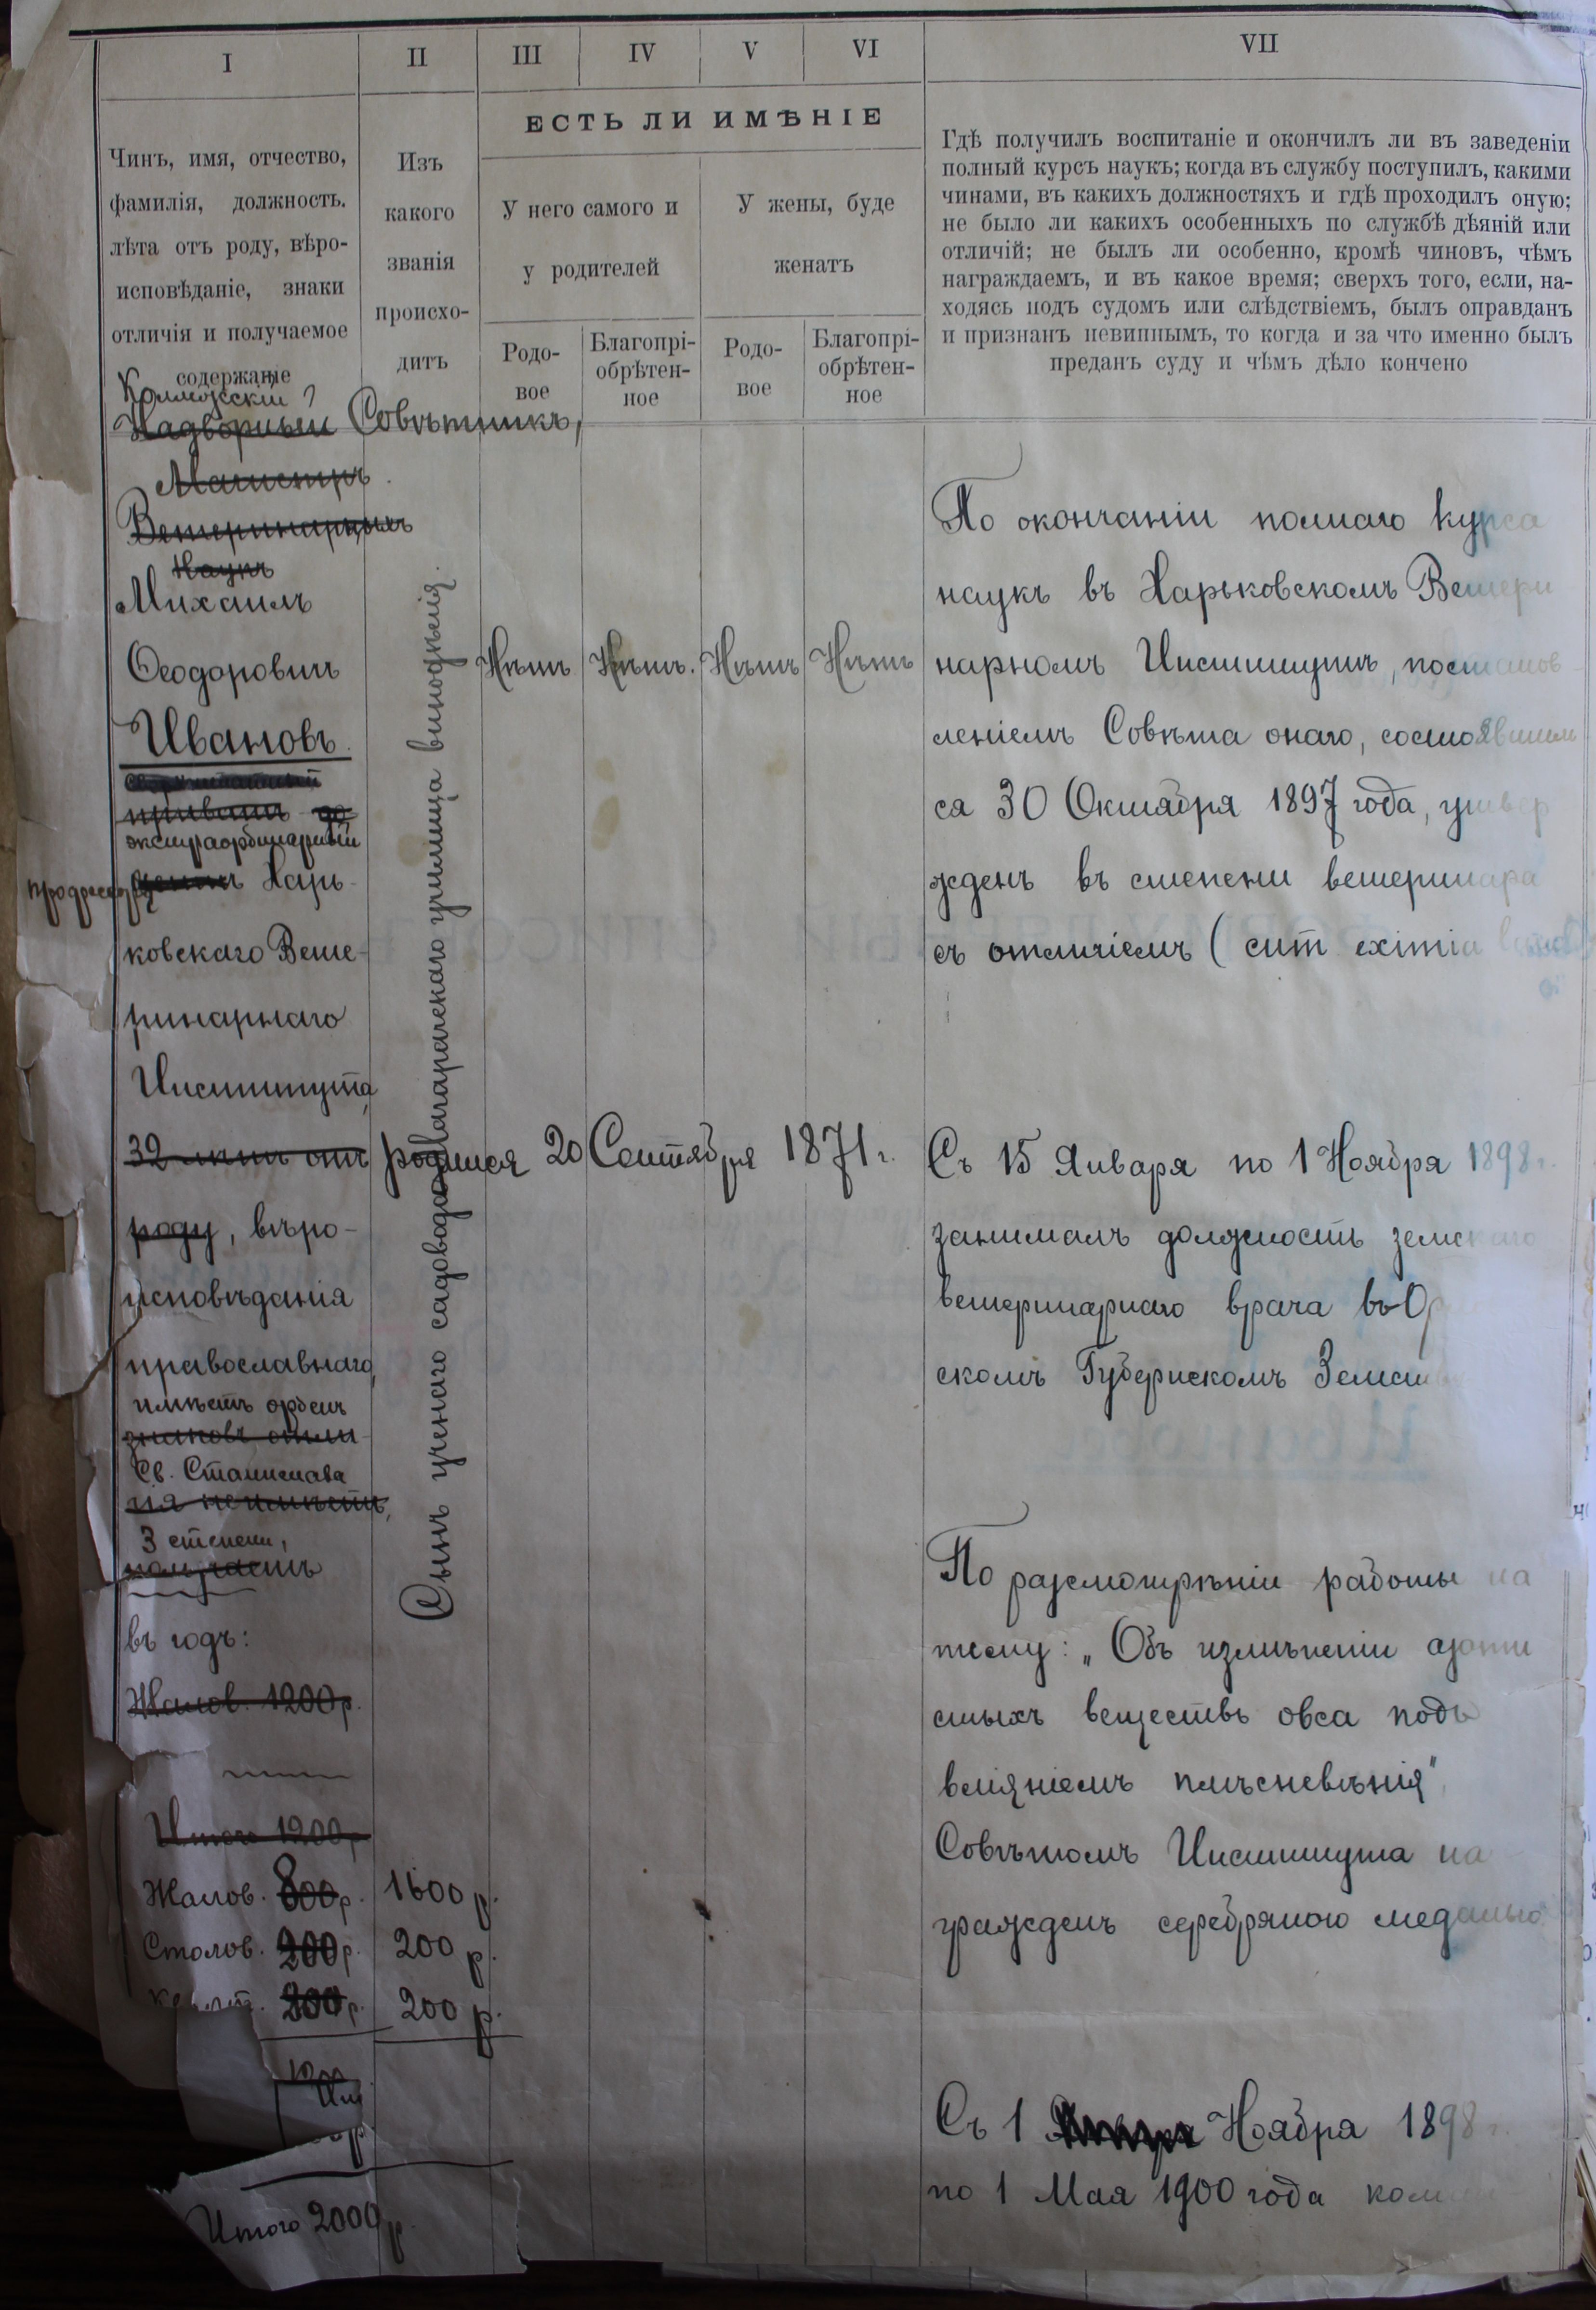 I
II
III
IV
V
VI
VII
ЕСТЬ ЛИ ИМѢНІЕ
Чинъ, имя, отчество,
фамилія, должность.
лѣта отъ роду, вѣро-
исповѣданіе, знаки
отличія и получаемое
содержаніе
Изъ
какого
званія
происхо-
дитъ
У него самого и
у родителей
У жены, буде
женатъ
Родо-
вое
Благопрі-
обрѣтен-
ное
Родо-
вое
Благопрі-
обрѣтен-
ное
Гдѣ получилъ воспитаніе и окончилъ ли въ заведеніи
полный курсъ наукъ; когда въ службу поступилъ, какими
чинами, въ какихъ должностяхъ и гдѣ проходилъ оную;
не было ли какихъ особенныхъ по службѣ дѣяній или
отличій; не былъ ли особенно, кромѣ чиновъ, чѣмъ
награждаемъ, и въ какое время; сверхъ того, если, на-
ходясь подъ судомъ или слѣдствіемъ, былъ оправданъ
и признанъ невиннымъ, то когда и за что именно былъ
преданъ суду и чѣмъ дѣло кончено
Коллежскій
Надворный Совѣтникъ,
Магистръ
Ветеринарныхъ
Наукъ
Михаилъ
Ѳеодоровичъ
Ивановъ
приватъ-до
экстраординарный
центъ Харь-
ковскаго Вете-
ринарнаго
Института
32 лѣтъ отъ родился 20 Сентября 1871 г.
роду, вѣро-
исповѣданія
православнаго,
имѣетъ орденъ
знаковъ отли-
Св. Станислава
чія не имѣетъ,
3 степени,
получаетъ
въ годъ:
Жалов. 1200 р.
Итого 1200 р.
Жалов. 800 р. 1600 р.
Столов. 200 р. 200 р.
200 р. 200 р.
1200
Итого 2000 р.
Сынъ ученаго садовода Магарачскаго училища винодѣлія.
Нѣтъ Нѣтъ. Нѣтъ Нѣтъ
По окончаніи полнаго курса
наукъ въ Харьковскомъ Ветери
нарномъ Институтѣ, постанов-
леніемъ Совѣта онаго, состоявшим
ся 30 Октября 1897 года, утвер
жденъ въ степени ветеринара
съ отличіемъ (cum eximia
Съ 15 Января по 1 Ноября 1898 г.
занималъ должность земскаго
ветеринарнаго врача въ
скомъ Губернскомъ Земст
По разсмотрѣніи работы на
тему: „Объ измѣненіи азоти
стыхъ веществъ овса подъ
вліяніемъ плѣсневѣнія"
Совѣтомъ Института на
гражденъ серебряною медалью
Съ 1 Ноября 1898 г.
по 1 Мая 1900 года